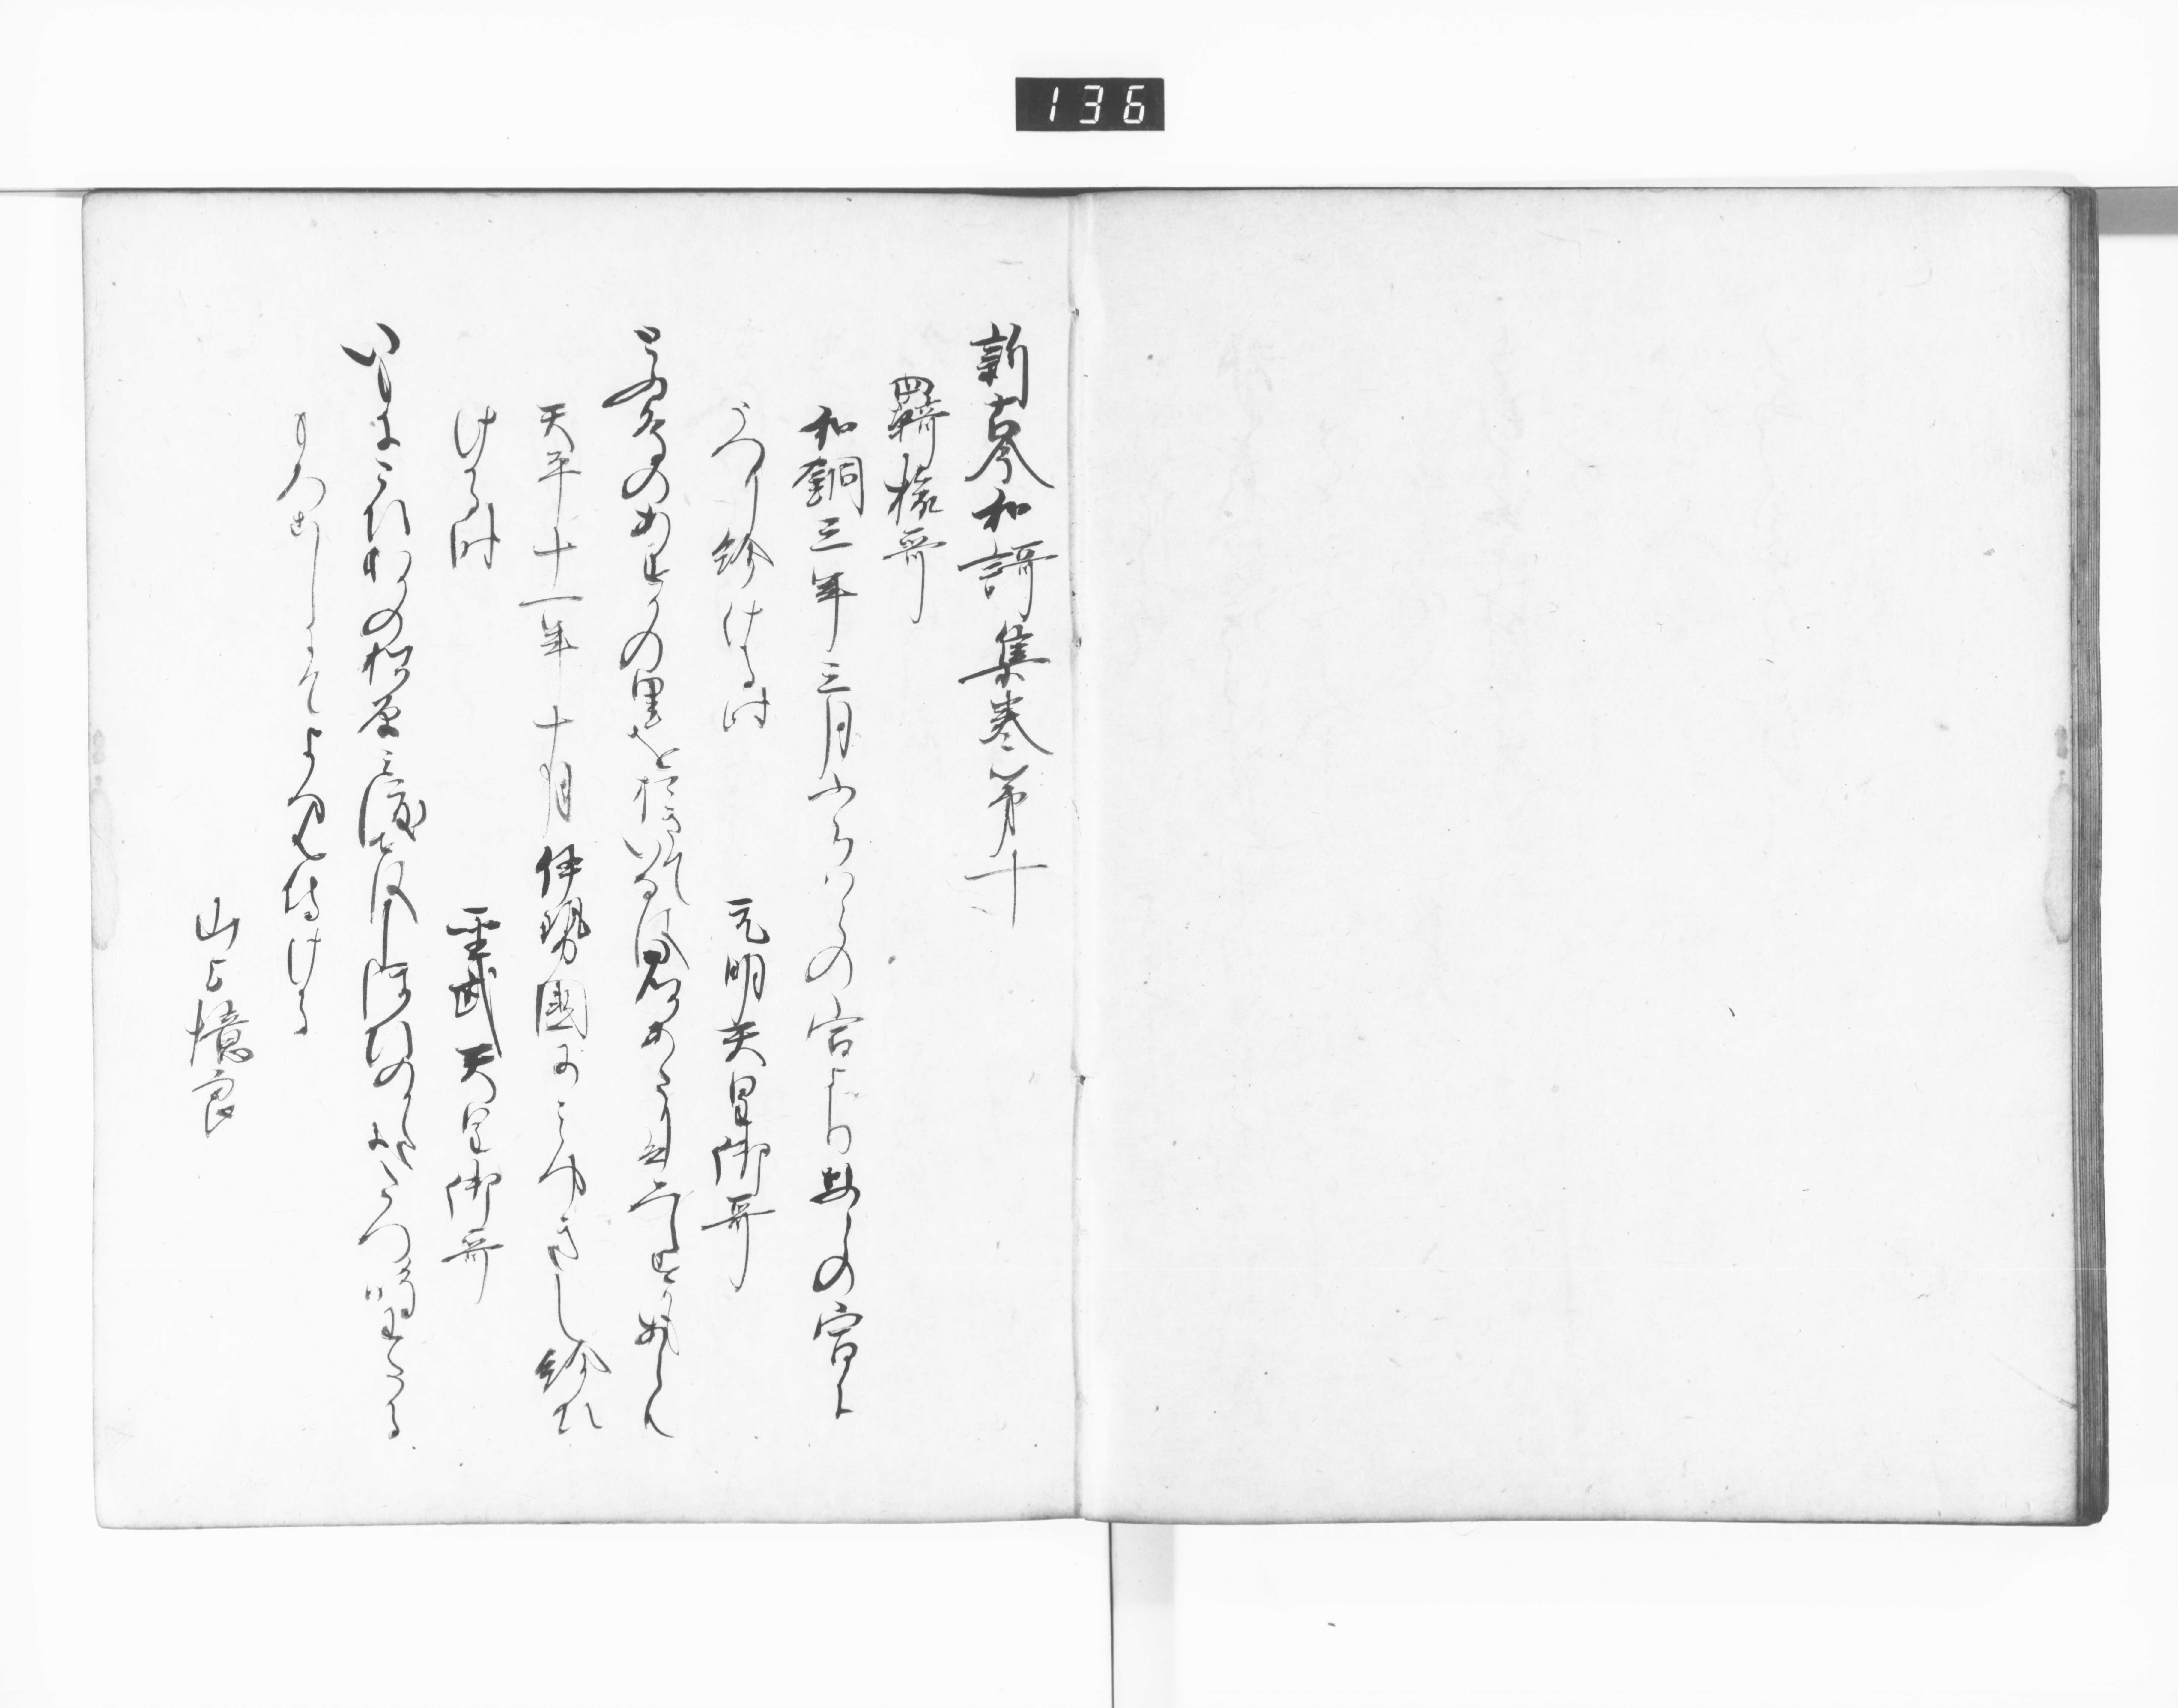 136
新古今和謌集巻第十
羇旅哥
和銅三年三月ふちはらの宮よりならの宮に
うつり給ける時
元明天皇御哥
とふ鳥のあすかの里をおきていなは君かあたりは見えすかもあらん
天平十二年十月伊勢國にみゆきし給ひ
ける時
聖武天皇御哥
いもにこひわかの松原みわたせはしほひのかたにたつ鳴わたる
もろこしにてよみ侍ける
山上憶良